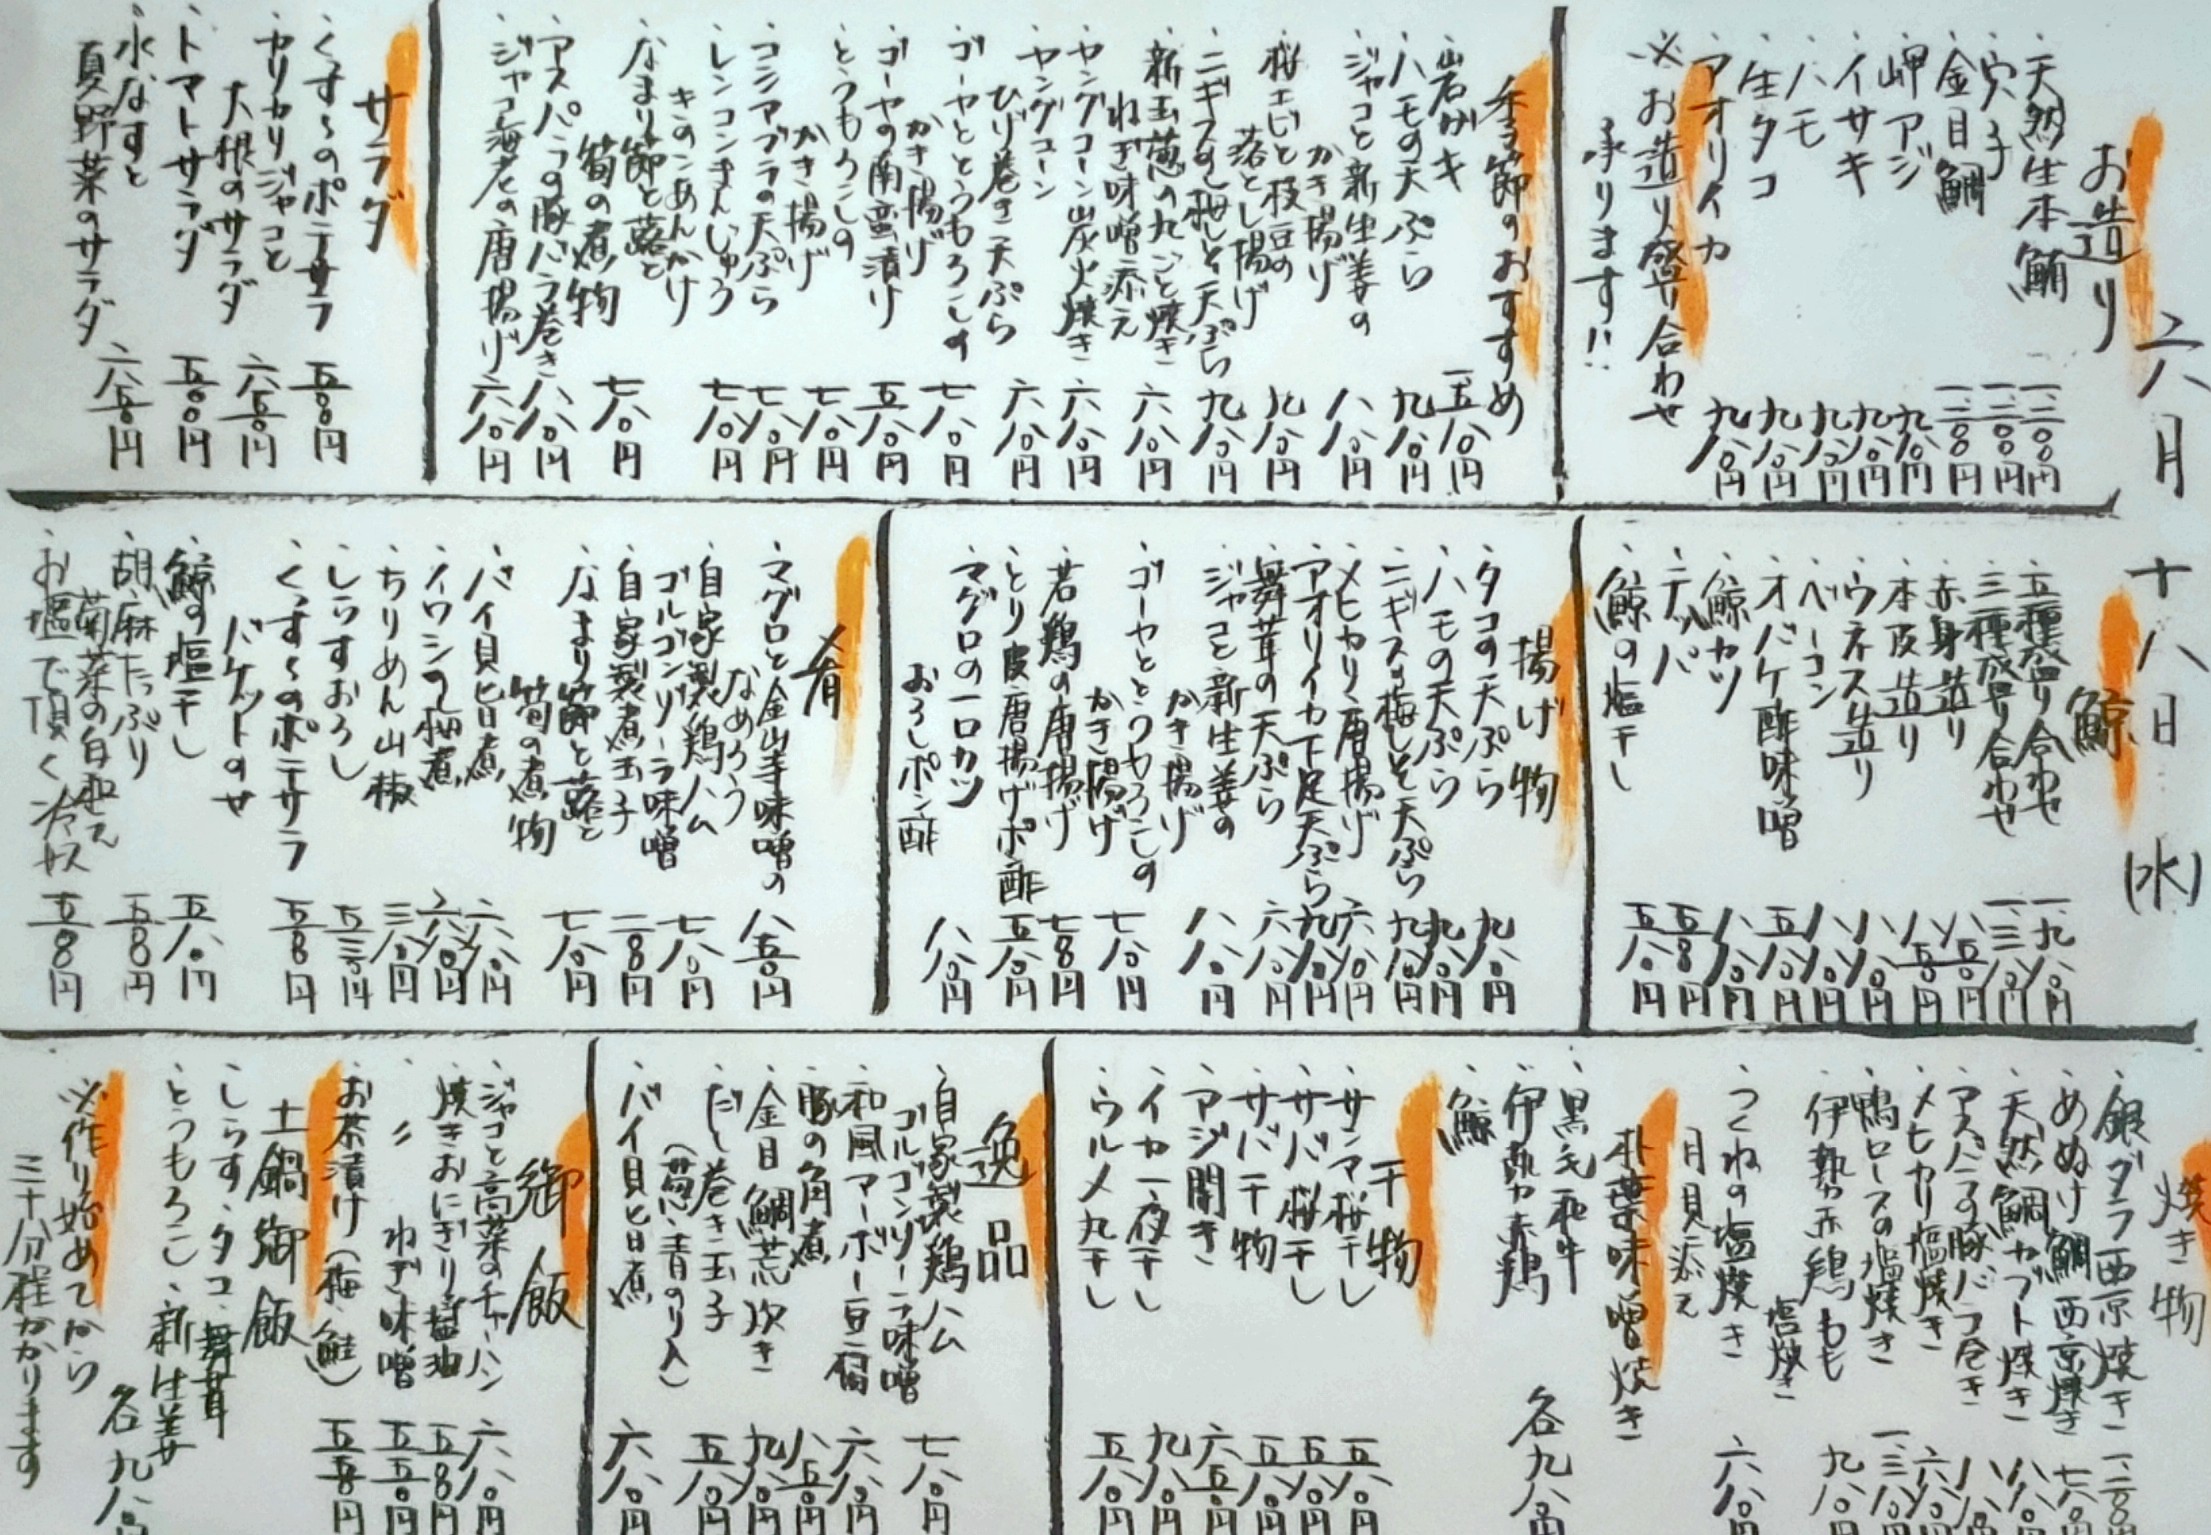 六月 十八日 (水)
お造り
・天然生本鮪 一、二〇〇円
・穴子 一、二〇〇円
・金目鯛 一、二〇〇円
・岬アジ 九八〇円
・イサキ 九八〇円
・ハモ 九八〇円
・生タコ 九八〇円
・アオリイカ 九八〇円
※お造り盛り合わせ
承ります!!
季節のおすすめ
・岩ガキ 一、五八〇円
・ハモの天ぷら 九八〇円
・ジャコと新生姜の
かき揚げ 八八〇円
・桜エビと枝豆の
落とし揚げ 九八〇円
・ニギスの梅しそ天ぷら 九八〇円
・新玉葱の丸ごと焼き
ねぎ味噌添え 六八〇円
・ヤングコーン炭火焼き 六八〇円
・ヤングコーン
ひげ巻き天ぷら 六八〇円
・ゴーヤととうもろこしの
かき揚げ 七八〇円
・ゴーヤの南蛮漬け 五八〇円
・とうもろこしの
かき揚げ 七八〇円
・コシアブラの天ぷら 七八〇円
・レンコンまんじゅう
きのこあんかけ 七八〇円
・なまり節と蕗と
筍の煮物 七八〇円
・アスパラの豚バラ巻き 八八〇円
・ジャコ海老の唐揚げ 六八〇円
サラダ
・くずしのポテサラ 五〇〇円
・カリカリジャコと
大根のサラダ 六五〇円
・トマトサラダ 五〇〇円
・水なすと
夏野菜のサラダ 六五〇円
鯨
・五種盛り合わせ 一、九八〇円
・三種盛り合わせ 一、三八〇円
・赤身造り 八五〇円
・本皮造り 八五〇円
・ウネス造り 八八〇円
・ベーコン 八八〇円
・オバケ酢味噌 五八〇円
・鯨カツ 八八〇円
・テッパ 五八〇円
・鯨の塩干し 五八〇円
揚げ物
・タコの天ぷら 九八〇円
・ハモの天ぷら 九八〇円
・ニギスの梅しそ天ぷら 九八〇円
・メヒカリ唐揚げ 六八〇円
・アオリイカ下足天ぷら 九八〇円
・舞茸の天ぷら 六八〇円
・ジャコと新生姜の
かき揚げ 八八〇円
・ゴーヤととうもろこしの
かき揚げ 七八〇円
・若鶏の唐揚げ 七八〇円
・とり皮唐揚げポン酢 五八〇円
・マグロの一口カツ
おろしポン酢 八八〇円
肴
・マグロと金山寺味噌の
なめろう 八五〇円
・自家製鶏ハム
ゴルゴンゾーラ味噌 七八〇円
・自家製煮玉子 二八〇円
・なまり節と蕗と
筍の煮物 七八〇円
・バイ貝旨煮 六八〇円
・イワシの梅煮 六八〇円
・ちりめん山椒 三八〇円
・しらすおろし 五三〇円
・くずしのポテサラ
バケットのせ 五八〇円
・鯨の塩干し 五八〇円
・胡麻たっぷり
菊菜の白和え 五八〇円
・お塩で頂く冷奴 五八〇円
焼き物
・銀ダラ西京焼き
・めぬけ鯛西京焼き
・天然鯛カブト焼き
・アスパラの豚バラ巻き
・メヒカリ塩焼き
・鴨ロースの塩焼き
・伊勢赤鶏もも
塩焼き 九八〇円
・つくねの塩焼き
月見添え 六八〇円
朴葉味噌焼き
・黒毛和牛
・伊勢赤鶏
・鯨
各九八〇円
干物
・サンマ桜干し 五八〇円
・サバ桜干し 五八〇円
・サバ干物 五八〇円
・アジ開き 六五〇円
・イカ一夜干し 九八〇円
・ウルメ丸干し 五八〇円
逸品
・自家製鶏ハム
ゴルゴンゾーラ味噌 七八〇円
・和風マーボー豆腐 六八〇円
・豚の角煮 八五〇円
・金目鯛荒炊き 九八〇円
・だし巻き玉子
(葱・青のり入) 五八〇円
・バイ貝旨煮 六八〇円
御飯
・ジャコと高菜のチャーハン 六八〇円
・焼きおにぎり醤油 五八〇円
・〃 ねぎ味噌 五五〇円
・お茶漬け(梅・鮭) 五五〇円
土鍋御飯
・しらす・タコ・舞茸
・とうもろこし・新生姜
各九八〇円
※作り始めてから
三十分程かかります